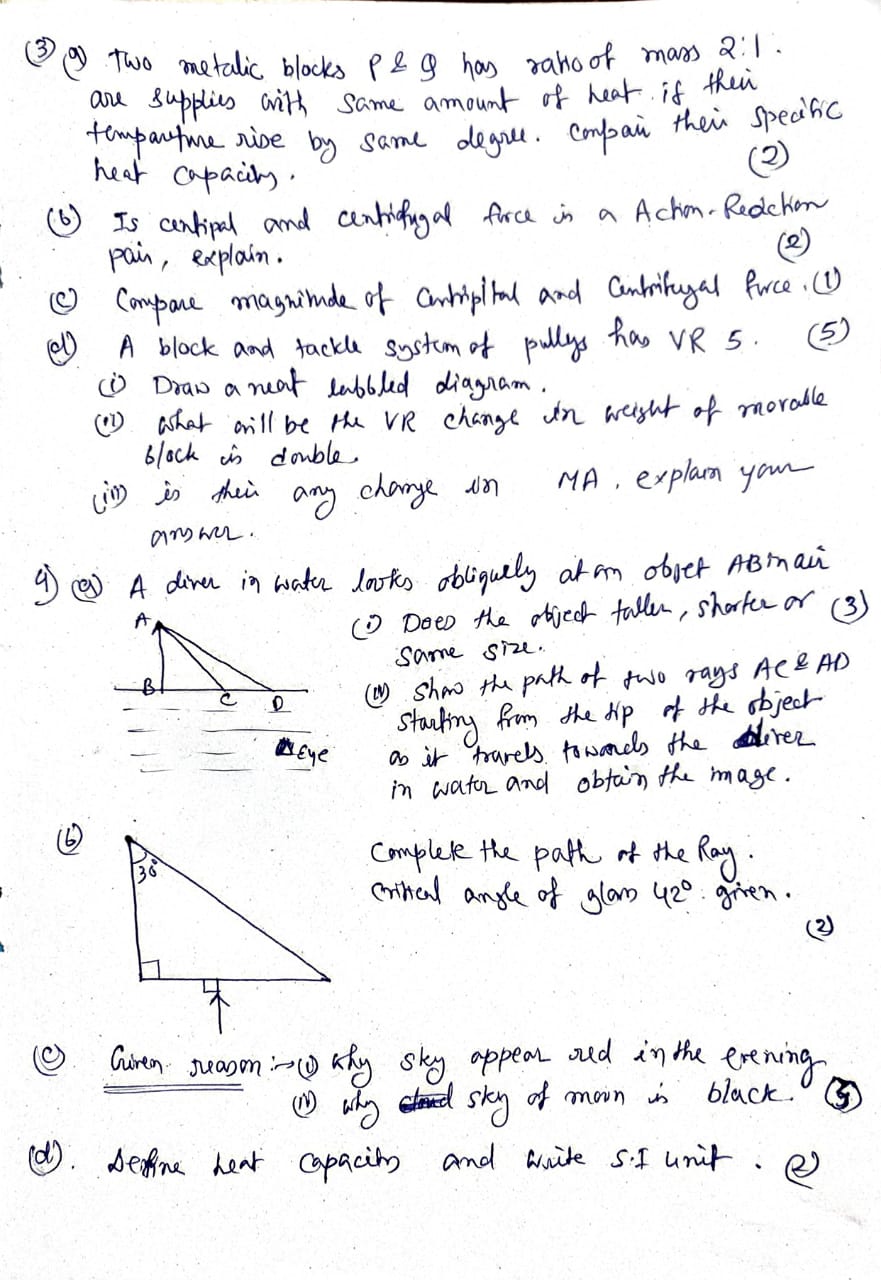 (3) (a) Two metalic blocks P & Q has ratio of mass 2:1.
are supplies with same amount of heat. if their
temparture rise by same degree. Compair their specific
heat capacity. (2)
(b) Is centipal and centrifugal force is a Action-Reaction
pair, explain. (2)
(c) Compare magnitude of Centripital and Centrifugal force. (1)
(d) A block and tackle system of pulleys has VR 5. (5)
(i) Draw a neat labbled diagram.
(ii) what will be the VR change in weight of movable
block is double.
(iii) is their any change in MA, explain your
answer.
4) (a) A diver in water looks obliquely at an objet AB in air
(i) Does the object taller, shorter or (3)
same size.
(ii) Show the path of two rays AC & AD
starting from the tip of the object
as it travels towards the diver
in water and obtain the image.
A
B C D
Eye
(b) Complete the path of the Ray.
30°
Critical angle of glass 42° given.
(2)
(c) Given reason :→ (i) Why sky appear red in the evening
(ii) why sky of moon is black. (3)
(d). Define heat capacity and write S.I unit. (2)